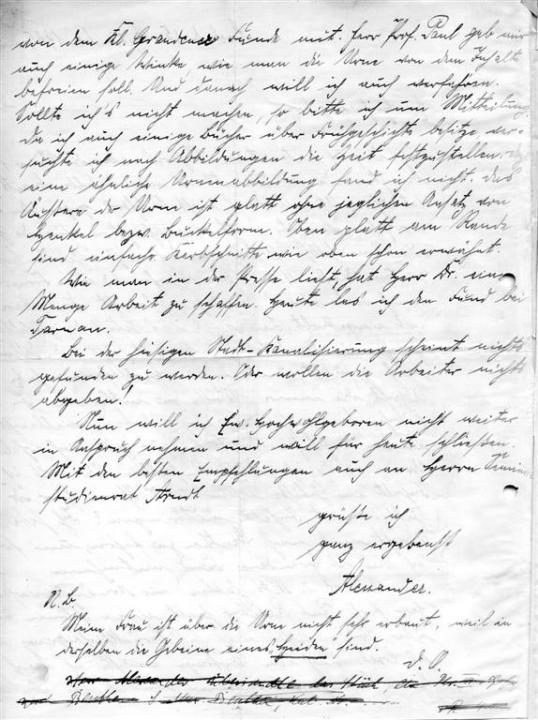 von dem Kl. Grandener Funde mit. Herr Prof. Paul gab mir
auch einige Winke wie man die Urne von dem Inhalt
befreien soll. Und danach will ich auch verfahren.
Sollte ich's nicht machen, so bitte ich um Mitteilung.
Da ich auch einige Bücher über Frühgeschichte besitze, ver-
suchte ich nach Abbildungen die Zeit festzustellen.
eine ähnliche Urnenabbildung fand ich nicht. Das
Äußere der Urne ist glatt ohne jeglichen Ansatz von
Henkel bezw. Buckelform. Oben glatt am Rande
sind einfache Kerbschnitte wie oben schon erwähnt.
Wie man in der Presse liest, hat Herr Dr. eine
Menge Arbeit zu schaffen. Heute las ich den Fund bei
Bei der hiesigen Stadt-Kanalisierung scheint nichts
gefunden zu werden. Oder wollen die Arbeiter nichts
abgeben.
Nun will ich Ew. Hochwohlgeboren nicht weiter
in Anspruch nehmen und will für heute schließen.
Mit den besten Empfehlungen auch an Herrn
studienrat Arndt
grüße ich
ganz ergebenst
Alexander.
N.B.
Meine Frau ist über die Urne nicht sehr erbaut, weil in
derselben die Gebeine eines Heiden sind.
d. O.